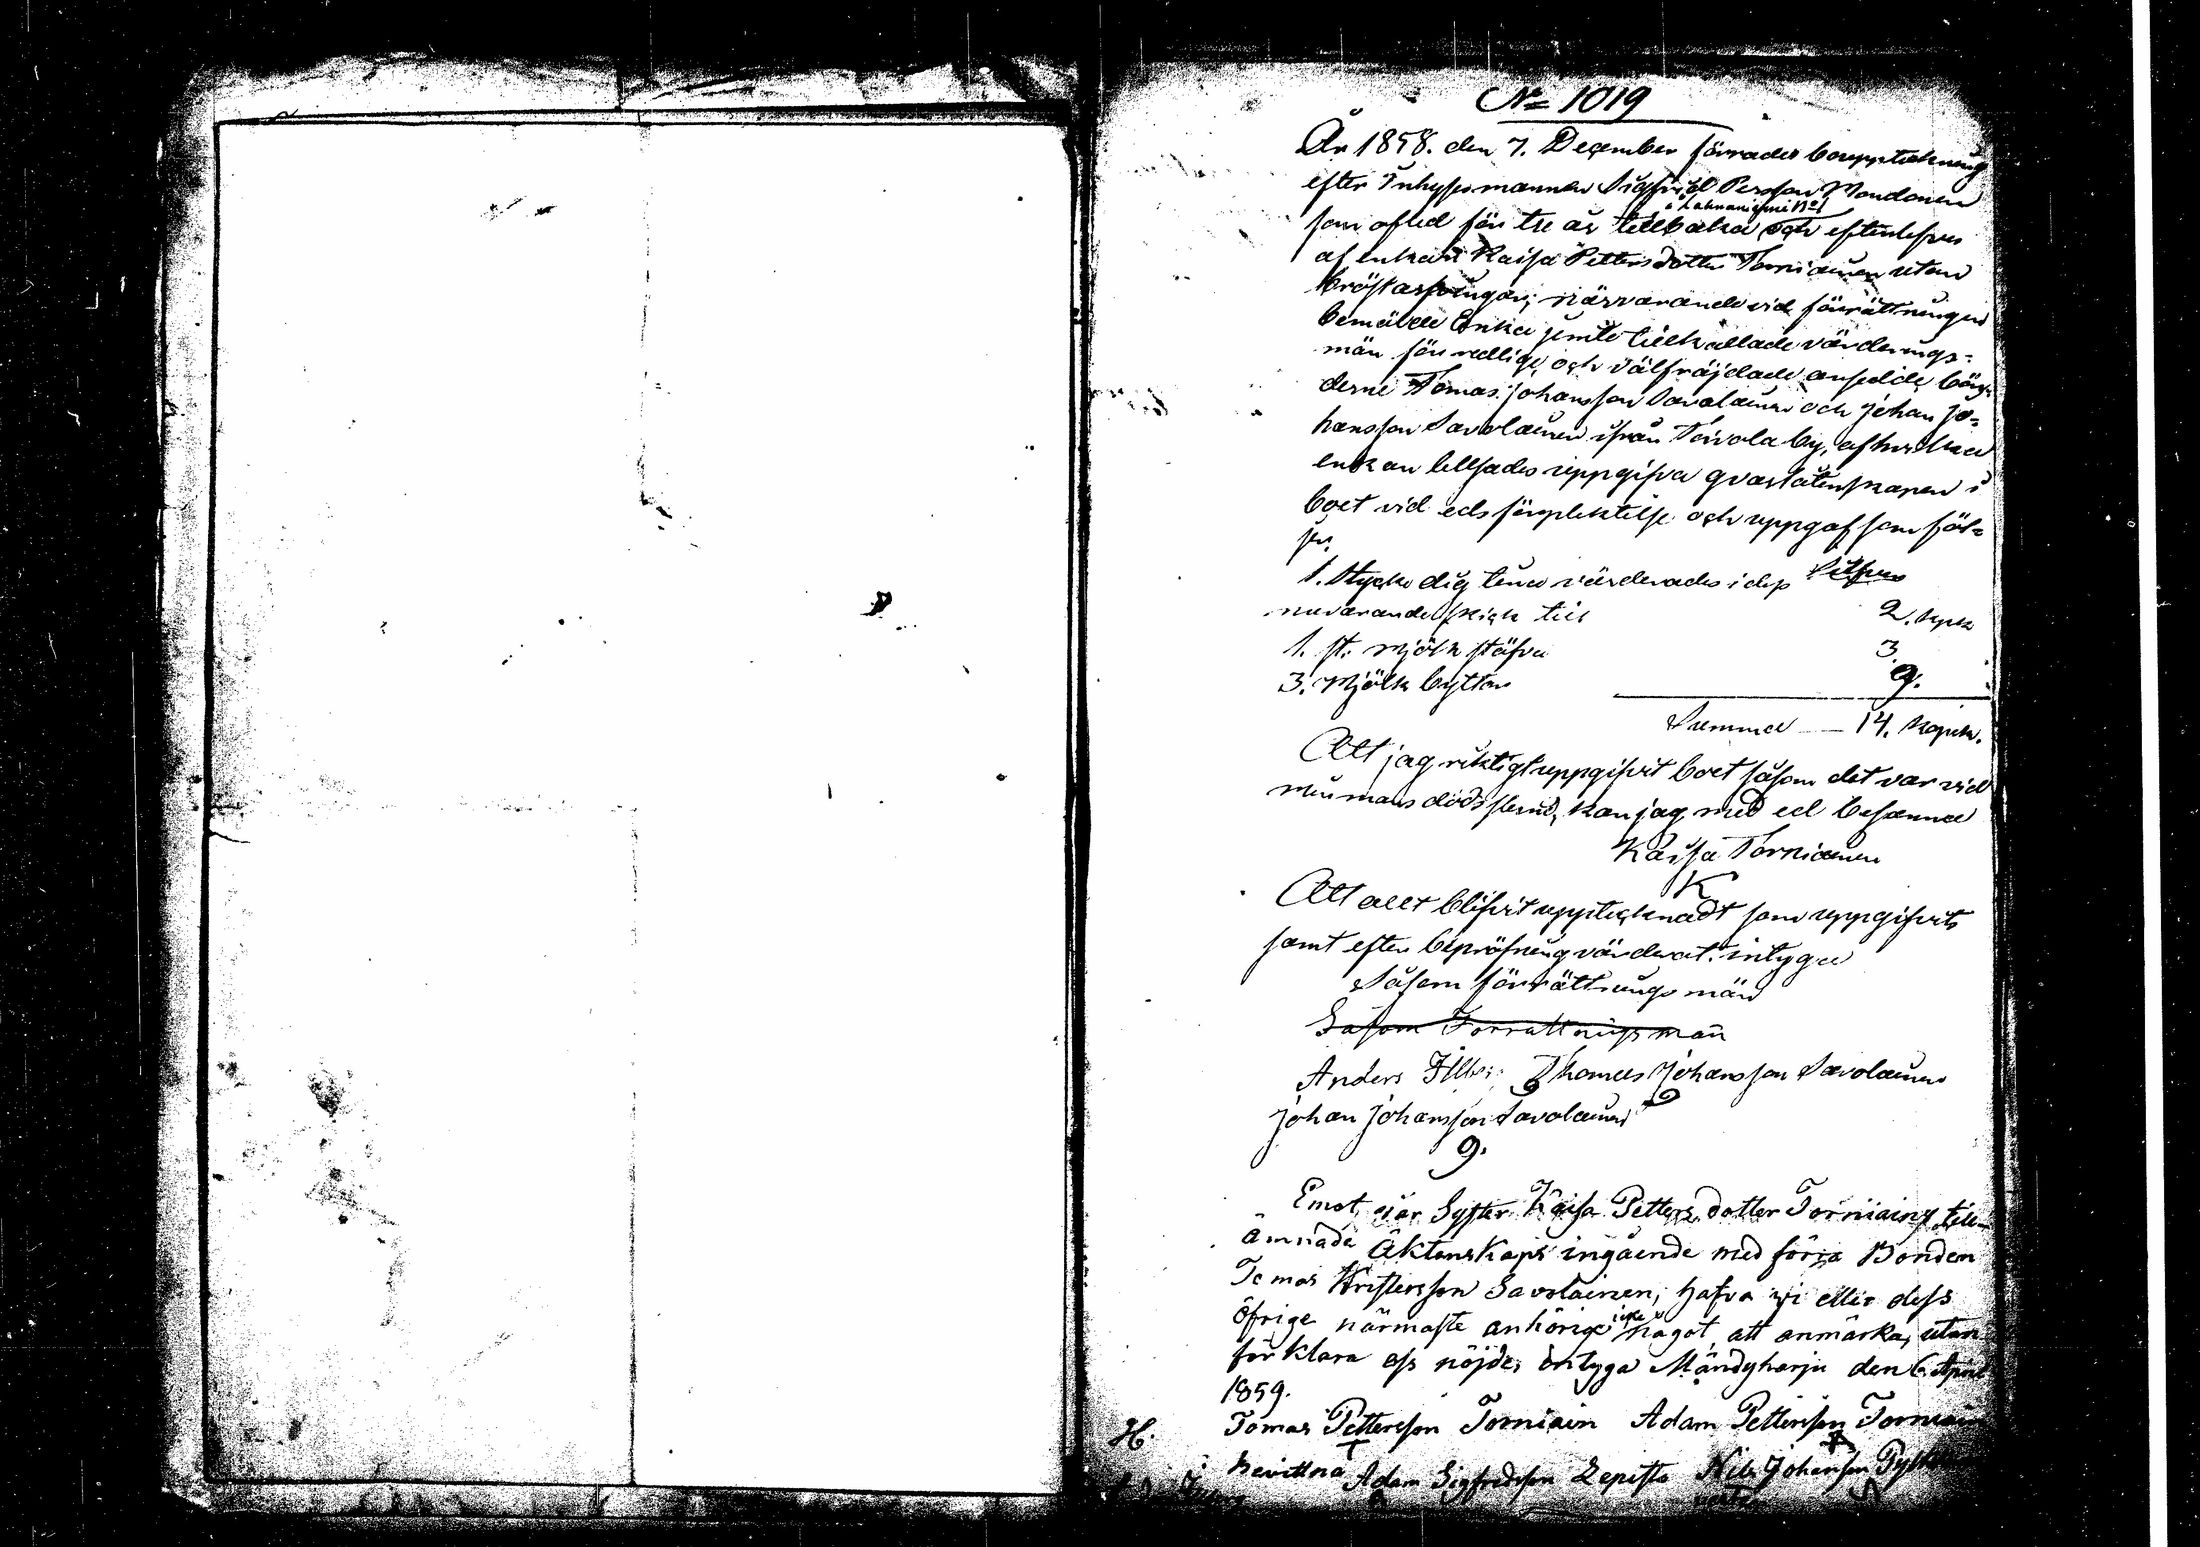 No 1019
År 1858. den 7. December förrades bouppteckning
efter Inhysesmannen Sigfrid Persson Mondonen
i Lahnaniemi No 1
som afled för tre år tillbaka och efterlefves
af enkan Kaisa Pettersdotter Torniainen utan
bröstarfvingar; närvarande vid förrättningen
bemälde Enka jemte tillkallade värderings-
män för redlige och välfräjdade ansedde bön-
derne Tomas Johansson Savolainen och Johan Jo-
hansson Savolainen ifrån Toivola by, af hvilka
enkan tillsades uppgifva qvarlåtenskapen i
boet vid eds förpliktelse och uppgaf som föl-
jer.
1. Stycke dig tina värderades i dess Silfver
nuvarande skick till 2. kopek
1. st. mjölk stäfva 3
3. Mjölk byttor 9.
Summa — 14. kopek.
Att jag riktigt uppgifvit boet såsom det var vid
min mans dödsstund, kan jag med ed besanna
Kaisa Torniainen
K
Att allt blifvit upptecknadt som uppgifvits
samt efter bepröfning värderat. intyga
Såsom förrättnings män
Såsom Förrättnings män
Anders Thomas Johansson Savolainen
Johan Johansson Savolainen
9.
Emot vår Syster Kaisa Petters dotter Torniainy till-
ämnade Äktenskaps ingående med förra Bonden
Tomas Kristersson Savolainen; hafva vi eller dess
öfrige närmaste anhörige icke något att anmärka, utan
förklara oss nöjde, intyga Mändyharju den 6 April
1859.
Tomas Pettersson Torniain Adam Pettersson Torniain
H.
bevittna Adam Sigfredsson Lepistö Nils Johansson